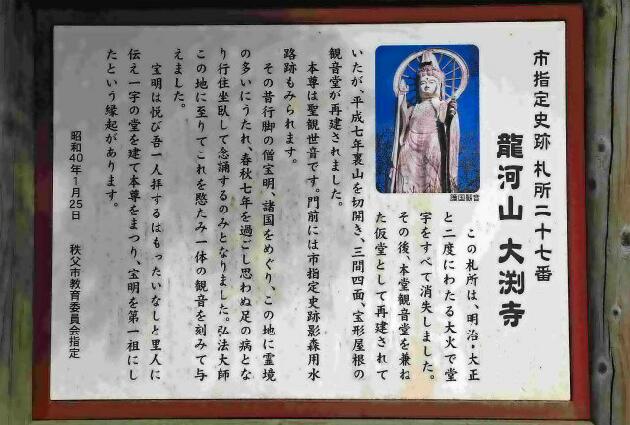 市指定史跡 札所二十七番
龍河山 大渕寺
この札所は、明治・大正
と二度にわたる大火で堂
宇をすべて消失しました。
その後、本堂観音堂を兼ね
た仮堂として再建されて
護国観音
いたが、平成七年裏山を切開き、三間四面、宝形屋根の
観音堂が再建されました。
本尊は聖観世音です。門前には市指定史跡影森用水
路跡もみられます。
その昔行脚の僧宝明、諸国をめぐり、この地に霊境
の多いにうたれ、春秋七年を過ごし思わぬ足の病とな
り行住坐臥して念誦するのみとなりました。弘法大師
この地に至りてこれを愍たみ一体の観音を刻みて与
えました。
宝明は悦び吾一人拝するはもったいなしと里人に
伝え一宇の堂を建て本尊をまつり、宝明を第一祖にし
たという縁起があります。
昭和40年1月25日 秩父市教育委員会指定